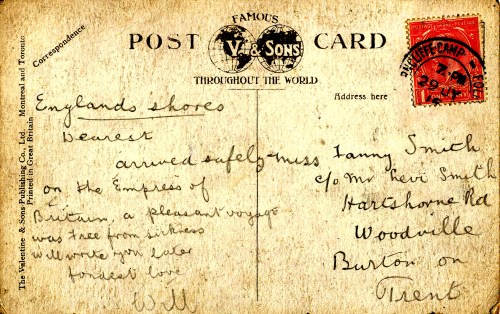 FAMOUS
POST V. & SONS CARD
THROUGHOUT THE WORLD
Correspondence
Address here
The Valentine & Sons Publishing Co., Ltd. Montreal and Toronto
Printed in Great Britain
CLIFFE CAMP
7 PM
29 JY
Englands shores
Dearest
arrived safely
on the Empress of
Britain, a pleasant voyage
was free from sickness
will write you later
fondest love
Will
Miss Fanny Smith
c/o Mr Levi Smith
Hartshorne Rd
Woodville
Burton on
Trent